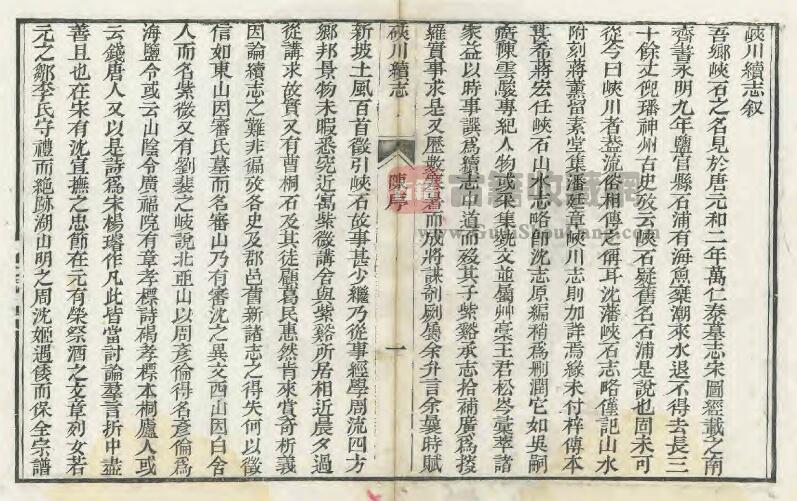 硤川續志叙
吾鄉峽石之名見於唐元和二年萬仁泰墓志宋圖經載之南
齊書永明九年鹽官縣石浦有海魚乘潮來水退不得去長三
十餘丈倪璠神州古史攷云硤石疑舊名石浦是說也固未可
從今曰峽川者葢流俗相傳之稱耳沈藩峽石志略僅記山水
附刻蔣薰留素堂集潘廷章峽川志則加詳焉緣未付梓傳本
甚希蔣宏任峽石山水志略卽沈志原編稍爲刪潤它如吳嗣
廣陳雲駿專紀人物或采集詩文並屬艸稾王君松岑彙萃諸
家益以時事譔爲續志中道而歿其子紫谿承志拾補廣爲搜
羅質事求是又歷數寒暑而成將謀剞劂屬余弁言余曩時賦
硤川續志
陳序
一
新坡土風百首徵引峽石故事甚少繼乃從事經學周流四方
鄉邦景物未暇悉究近寓紫微講舍與紫谿所居相近晨夕過
從講求故實又有曹桐石及其徒顧葛民惠然肯來賞奇析義
因論續志之難非徧攷各史及郡邑舊新諸志之得失何以徵
信如東山因審氏墓而名審山乃有審沈之異文西山因白舍
人而名紫微又有劉裴之岐說北亞山以周彥倫得名彥倫爲
海鹽令或云山陰令廣福院有章孝標詩碣孝標本桐廬人或
云錢唐人又以是詩爲朱楊璿作凡此皆當討論羣言折中盡
善且也在宋有沈宜撫之忠節在元有榮祭酒之文章列女若
元之鄒李氏守禮而絶跡湖山明之周沈姬遇倭而保全宗譜